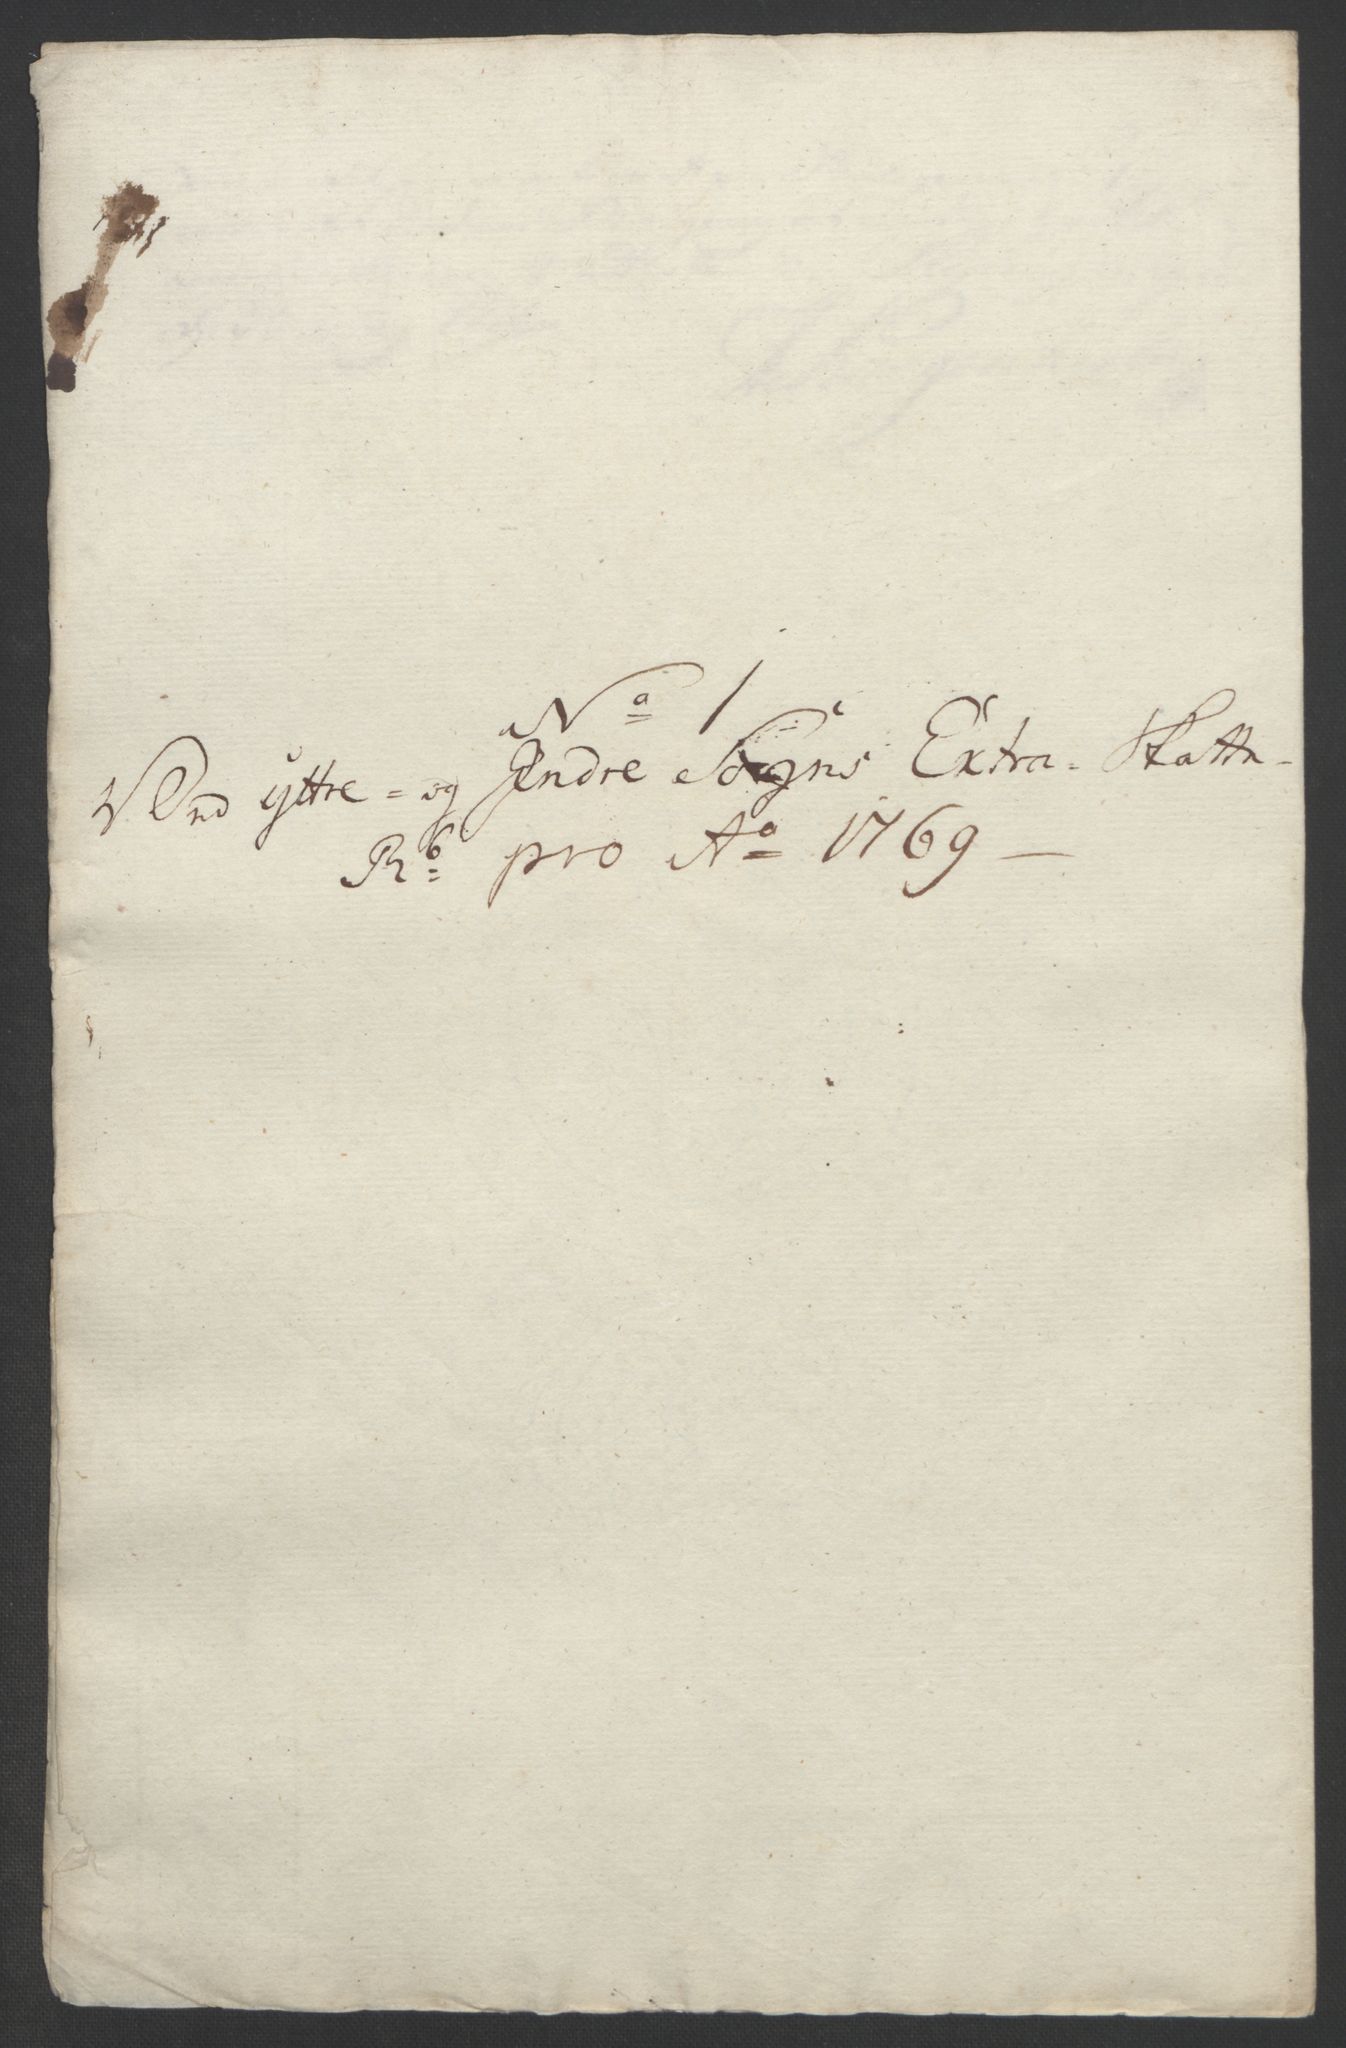 No 1
Ved yttre- og Indre Sogns Extra-Skatte-
Rb: pro Ao 1769 —